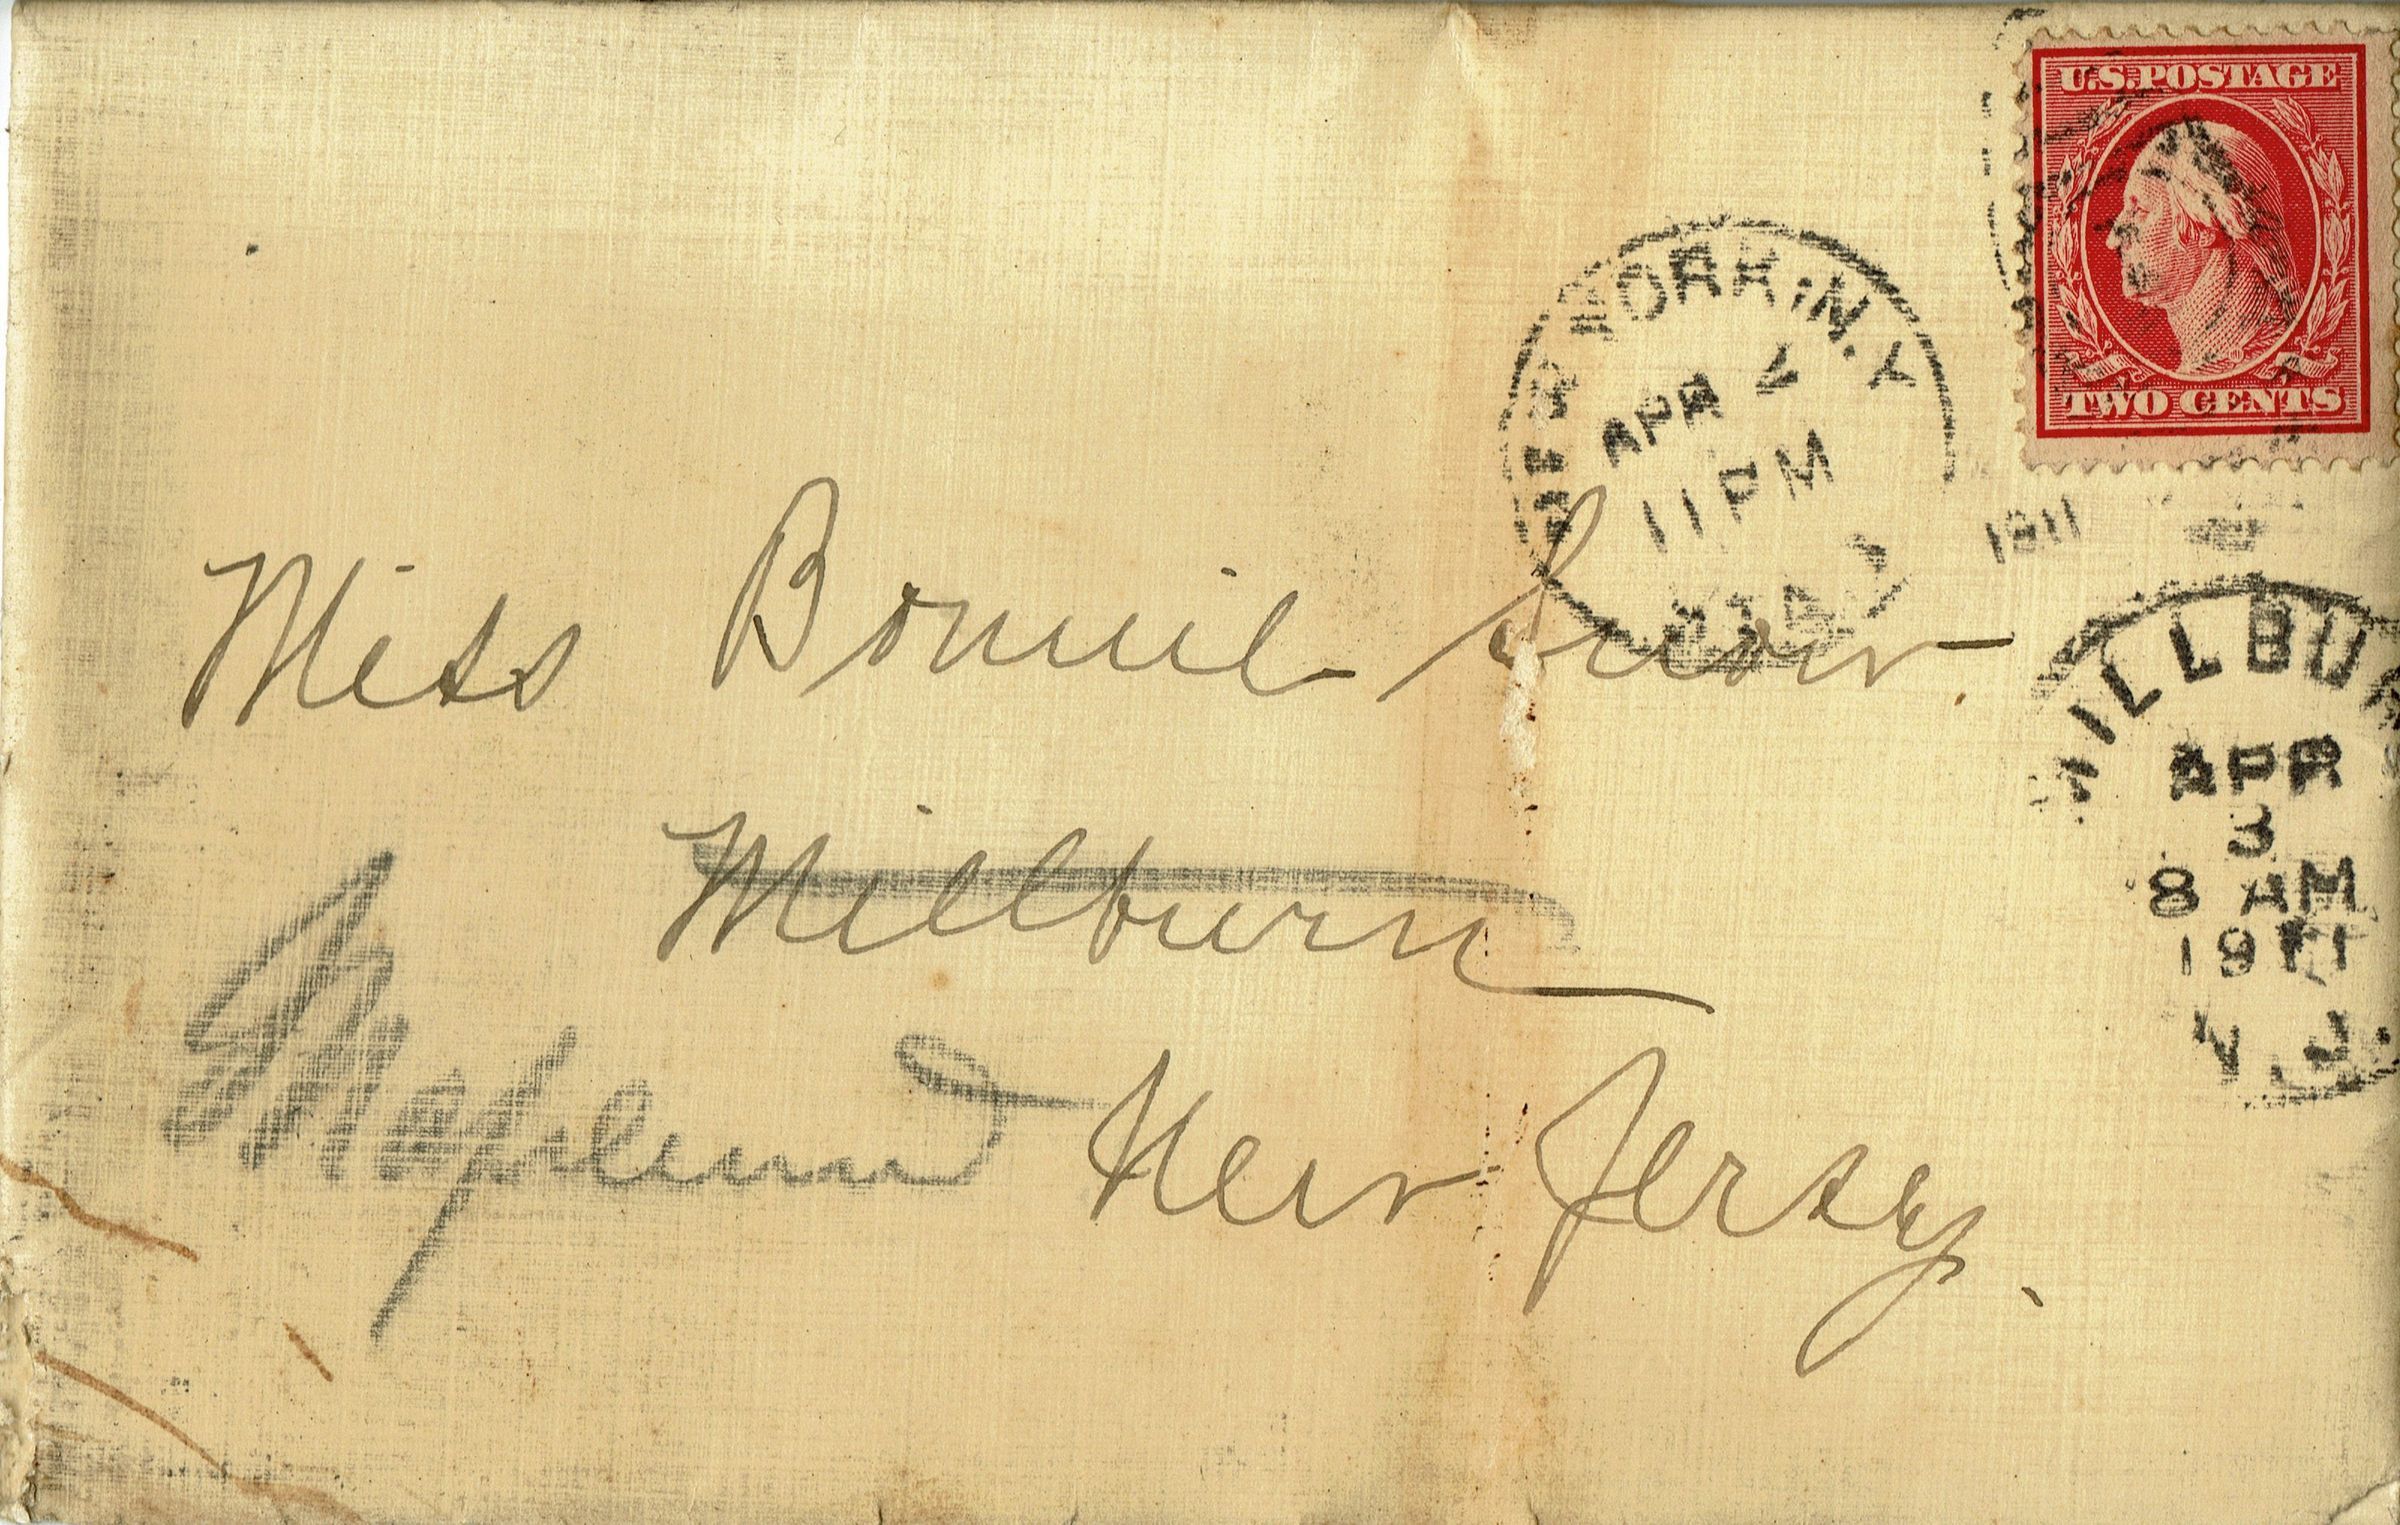 U.S. POSTAGE
TWO CENTS
NEW YORK, N.Y.
APR 2
11 PM
STA.
1911
MILLBUR
APR
3
8 AM
1911
N. J.
Miss Bonnie Snow
Millburn
Maplewood
New Jersey.